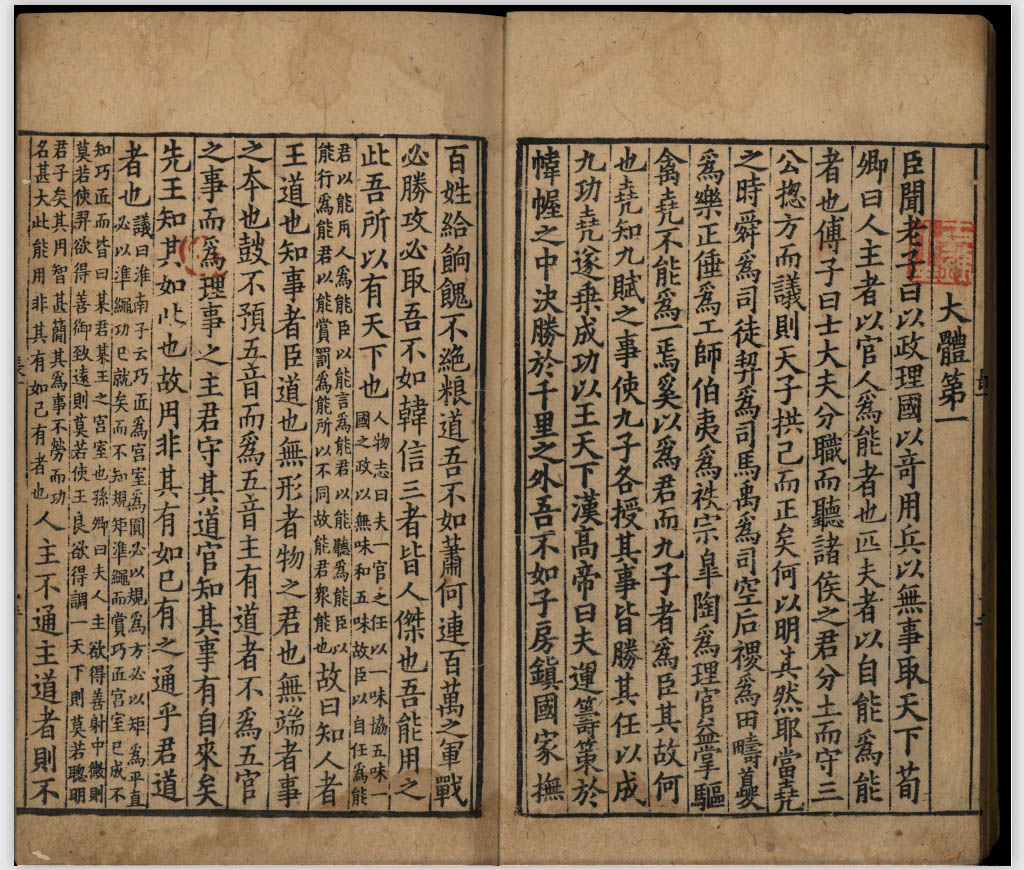 大體第一
臣聞老子曰以政理國以奇用兵以無事取天下荀
卿曰人主者以官人爲能者也匹夫者以自能爲能
者也傅子曰士大夫分職而聽諸侯之君分土而守三
公揔方而議則天子拱己而正矣何以明其然耶當堯
之時舜爲司徒契爲司馬禹爲司空后稷爲田疇夔
爲樂正倕爲工師伯夷爲秩宗皐陶爲理官益掌驅
禽堯不能爲一焉奚以爲君而九子者爲臣其故何
也堯知九賦之事使九子各授其事皆勝其任以成
九功堯遂乗成功以王天下漢髙帝曰夫運籌策於
幃幄之中決勝於千里之外吾不如子房鎮國家撫
百姓給餉餽不絶粮道吾不如蕭何連百萬之軍戰
必勝攻必取吾不如韓信三者皆人傑也吾能用之
此吾所以有天下也
人物志曰夫一官之任以一味協五味一
國之政以無味和五味故臣以自任爲能
君以能用人爲能臣以能言爲能君以能聽爲能臣以
能行爲能君以能賞罰爲能所以不同故能君衆能也
故曰知人者
王道也知事者臣道也無形者物之君也無端者事
之本也鼓不預五音而爲五音主有道者不爲五官
之事而爲理事之主君守其道官知其事有自來矣
先王知其如此也故用非其有如己有之通乎君道
者也
議曰淮南子云巧匠爲宮室爲圓必以規爲方必以矩爲平直
必以準繩功已就矣而不知規矩準繩而賞巧匠宮室已成不
知巧匠而皆曰某君某王之宮室也孫卿曰夫人主欲得善射中微則
莫若使羿欲得善御致遠則莫若使王良欲得調一天下則莫若聰明
君子矣其用智甚簡其爲事不勞而功
名甚大此能用非其有如己有者也
人主不通主道者則不